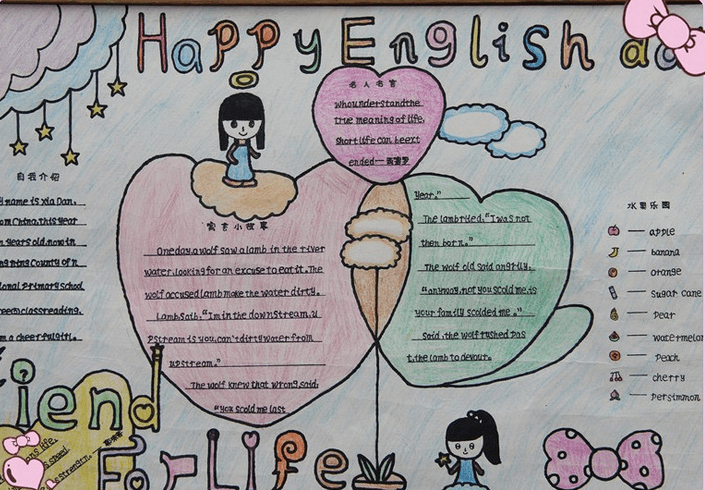 Happy English
名人名言
whounderstandthe
true meaning of life,
short life can beext
ended—西塞罗
自我介绍
y name is Xia Dan.
om China.this year
n years old.now in
County of n
ional primary school
classreading.
m a cheerfulgirl.
寓言小故事
Oneday.a wolf saw a lamb in the river
water.looking for an excuse to eat it. The
wolf accused lamb make the water dirty.
Lamb saib."Im in the downstream.u
Pstream is you.can't dirty water from
upstream."
The wolf knew that wrong.said:
"you scold me last
year."
The lamb ried."I was not
then born."
The wolf old said angrily.
"anyway.not you scold me.is
your family scolded me."
Said.the wolf rushed pas
t.the lamb to devour.
水果乐园
apple
banana
orange
Sugar cane
Pear
watermelon
Peach
cherry
Persimmon
iend
For Life
life.
strength.